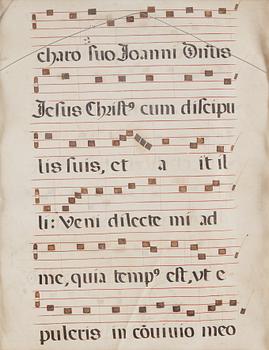 charo suo Joanni Dñus
Jesus Christꝰ cum discipu
lis suis, et a it il
li: Veni dilecte mi ad
me, quia tempꝰ est, vt e
puleris in cōuiuio meo